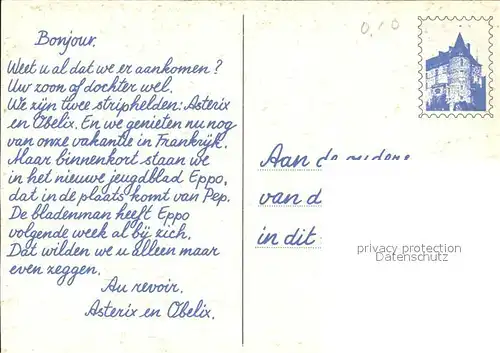 Bonjour.
Weet u al dat we er aankomen?
Uw zoon of dochter wel.
We zijn twee striphelden: Asterix
en Obelix. En we genieten nu nog
van onze vakantie in Frankrijk.
Maar binnenkort staan we
in het nieuwe jeugdblad Eppo,
dat in de plaats komt van Pep.
De bladenman heeft Eppo
volgende week al bij zich.
Dat wilden we u alleen maar
even zeggen.
Au revoir.
Asterix en Obelix.
0,10
Aan de
van d
in dit
privacy protection
Datenschutz